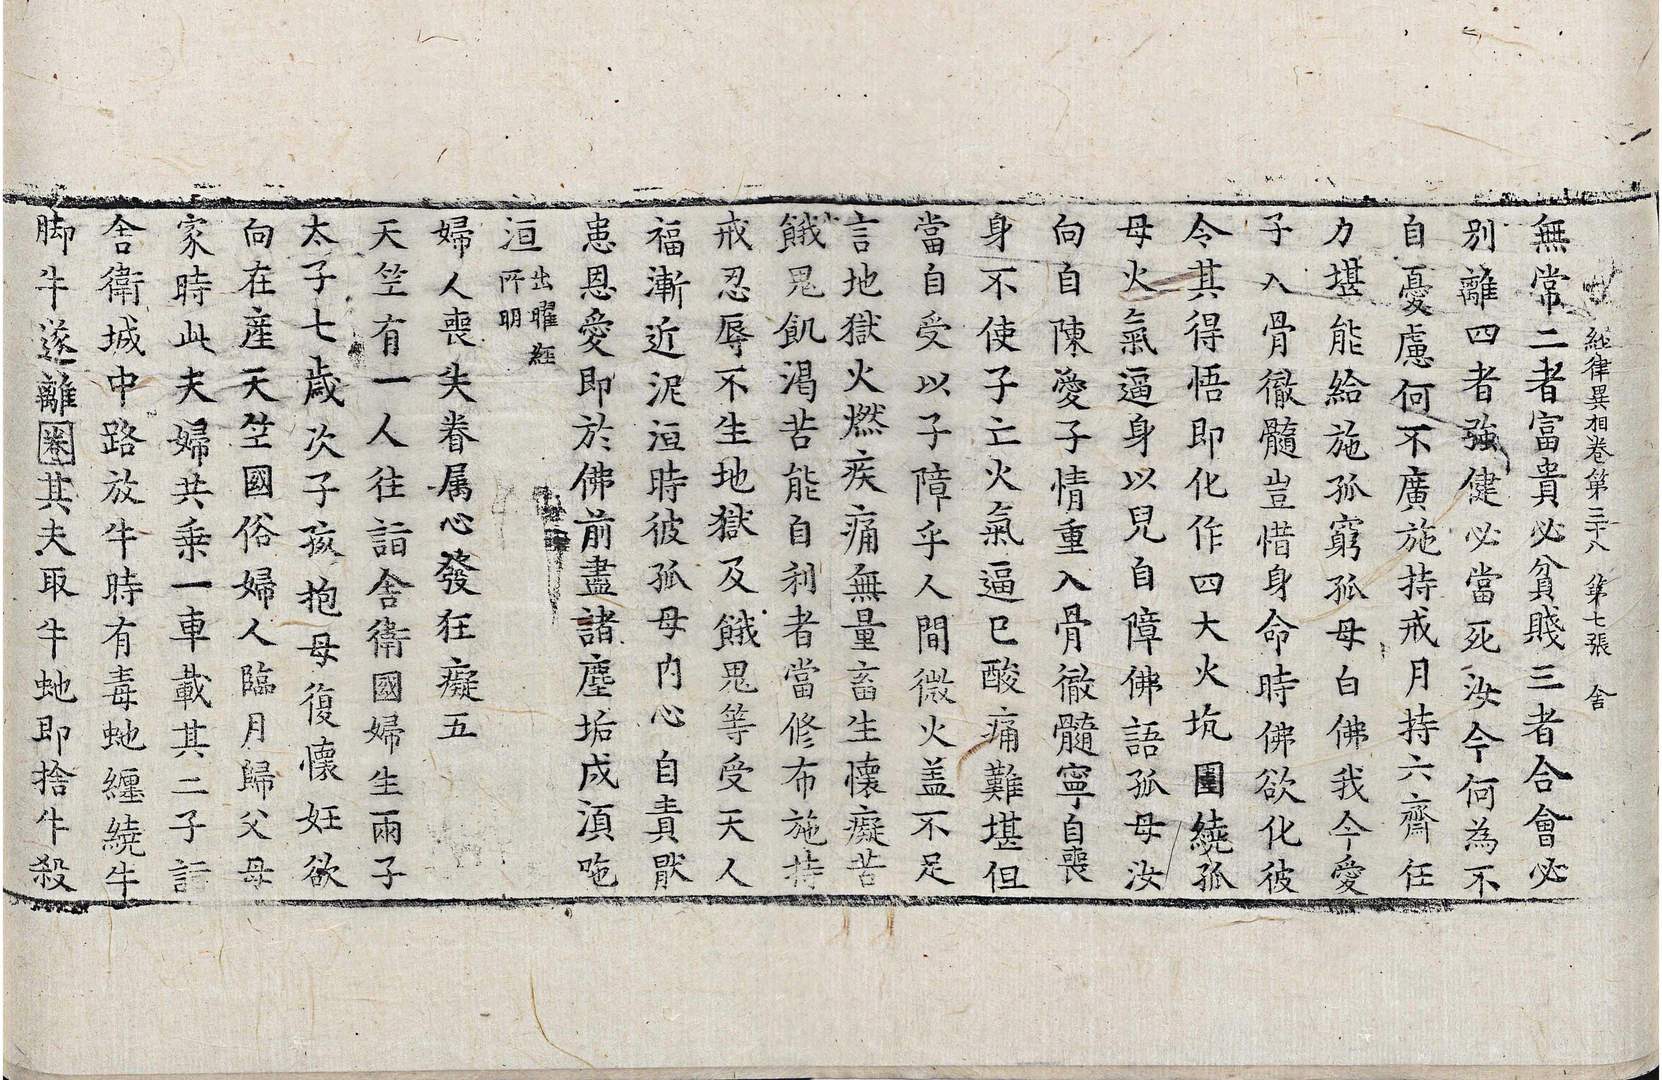 經律異相卷第三十八 第七張 舍
無常二者富貴必貧賤三者合會必
別離四者強健必當死汝今何為不
自憂慮何不廣施持戒月持六齋任
力堪能給施孤窮孤母白佛我今愛
子入骨徹髓豈惜身命時佛欲化彼
令其得悟即化作四大火坑圍繞孤
母火氣逼身以兒自障佛語孤母汝
向自陳愛子情重入骨徹髓寧自喪
身不使子亡火氣逼已酸痛難堪但
當自受以子障乎人間微火盖不足
言地獄火燃疾痛無量畜生懷癡苦
餓鬼飢渴苦能自利者當修布施持
戒忍辱不生地獄及餓鬼等受天人
福漸近泥洹時彼孤母内心自責厭
患恩愛即於佛前盡諸塵垢成須陁
洹出曜經所明
婦人喪失眷属心發狂癡五
天竺有一人往詣舍衛國婦生兩子
太子七歲次子孩抱母復懷妊欲
向在産天竺國俗婦人臨月歸父母
家時此夫婦共乗一車載其二子詣
舍衛城中路放牛時有毒虵纏繞牛
脚牛遂離卷其夫取牛虵即捨牛殺